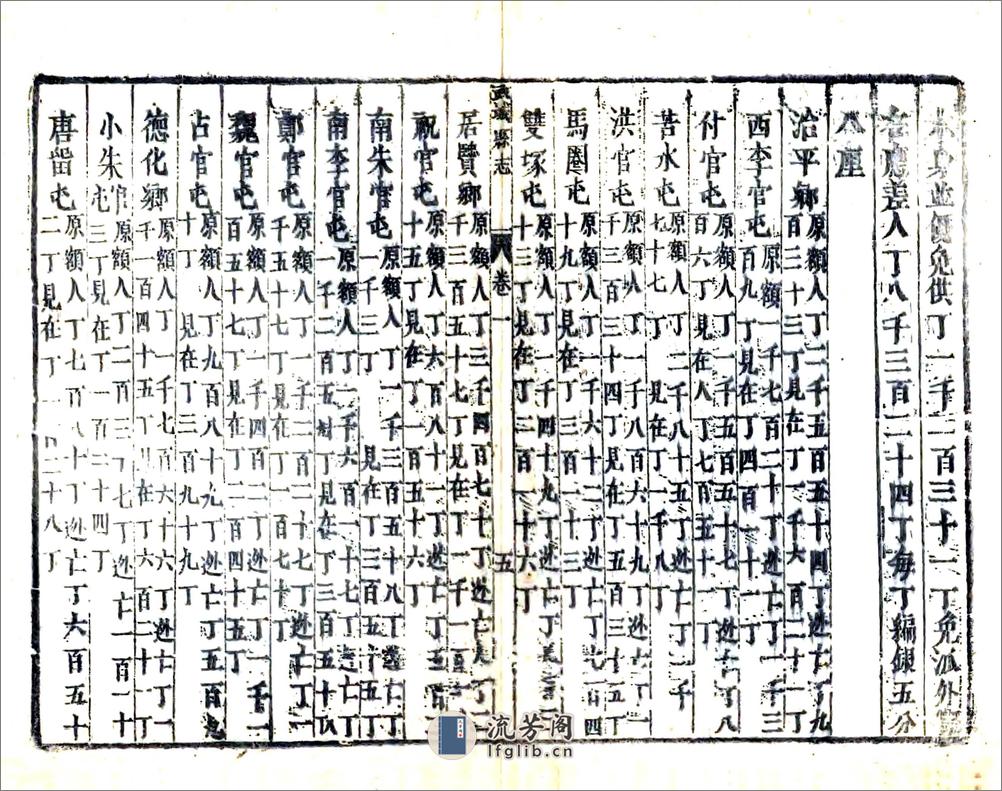 本身並優免供丁一千二百三十一丁免派外實
在應差人丁八千三百二十四丁每丁編銀五分
八厘
治平鄉原額人丁二千五百五十四丁逃亡丁九
百三十三丁見在丁一千六百二十一丁
西李官屯原額一千七百二十丁逃亡丁一千三
百九丁見在丁四百一十一丁
付官屯原額人丁一千五百五十七丁逃亡丁八
百六丁見在人丁七百五十一丁
苦水屯原額人丁二千八十五丁逃亡丁一千
七十七丁見在丁一千八丁
洪官屯原額人丁一千八百六十九丁逃亡丁一
千三百三十四丁見在丁五百三十五丁
馬圈屯原額人丁一千六十二丁逃亡丁九百四
十九丁見在丁一百一十三丁
雙塚屯原額人丁一千四十九丁逃亡丁
十三丁見在丁二百一十六丁
武城縣志
卷一
五
居賢鄉原額人丁三千四百七十丁逃亡丁二
千三百五十七丁見在丁一千一百一
祝官屯原額人丁六百八十一丁逃亡丁五百二
十五丁見在丁一百五十六丁
南朱官屯原額人丁一千三百五十八丁逃亡丁
一千三丁見在丁三百五十五丁
南李官屯原額人丁一千六百一十七丁逃亡丁
一千二百五十八丁見在丁三百五十九
鄭官屯原額人丁一千二百二十七丁逃亡丁一
千五十七丁見在丁一百七十丁
魏官屯原額人丁一千四百二丁逃亡丁一千一
百五十七丁見在丁二百四十五丁
占官屯原額人丁九百八十九丁逃亡丁五百九
十丁見在丁三百九十九丁
德化鄉原額人丁一千七百六十六丁逃亡丁一
千一百四十五丁見在丁六百二十一丁
小朱官屯原額人丁二百三十七丁逃亡一百一十
三丁見在丁一百二十四丁
唐留屯原額人丁七百八十丁逃亡丁六百五十
二丁見在丁一百二十八丁
流芳阁
lfglib.cn